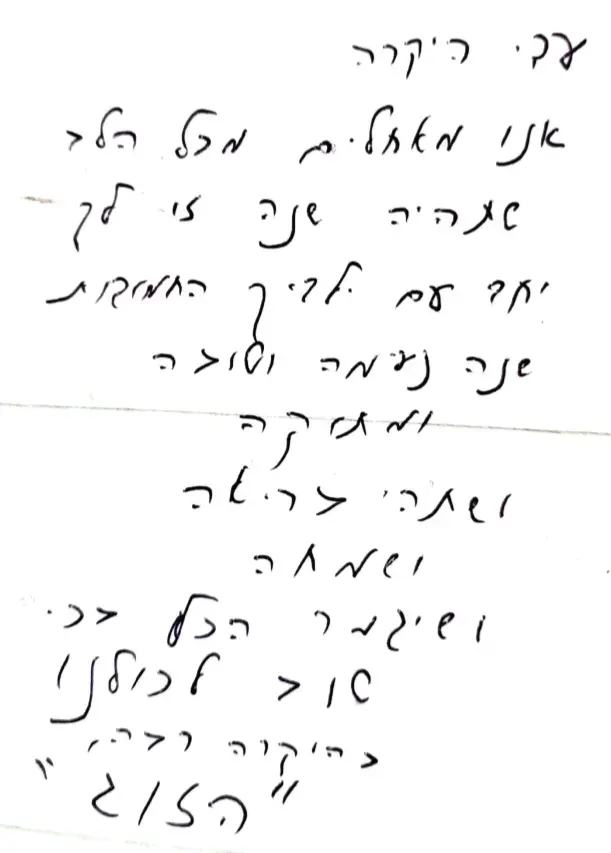 היקרה
אנו מאחלים מכל הלב
שתהיה שנה זו לך
יחד עם ילדיך החמודות
שנה נעימה וטובה
ומתוקה
ושתהי בריאה
ושמחה
ושיגמר הכל הכי
טוב לכולנו
בהוקרה רבה,
"הזוג"